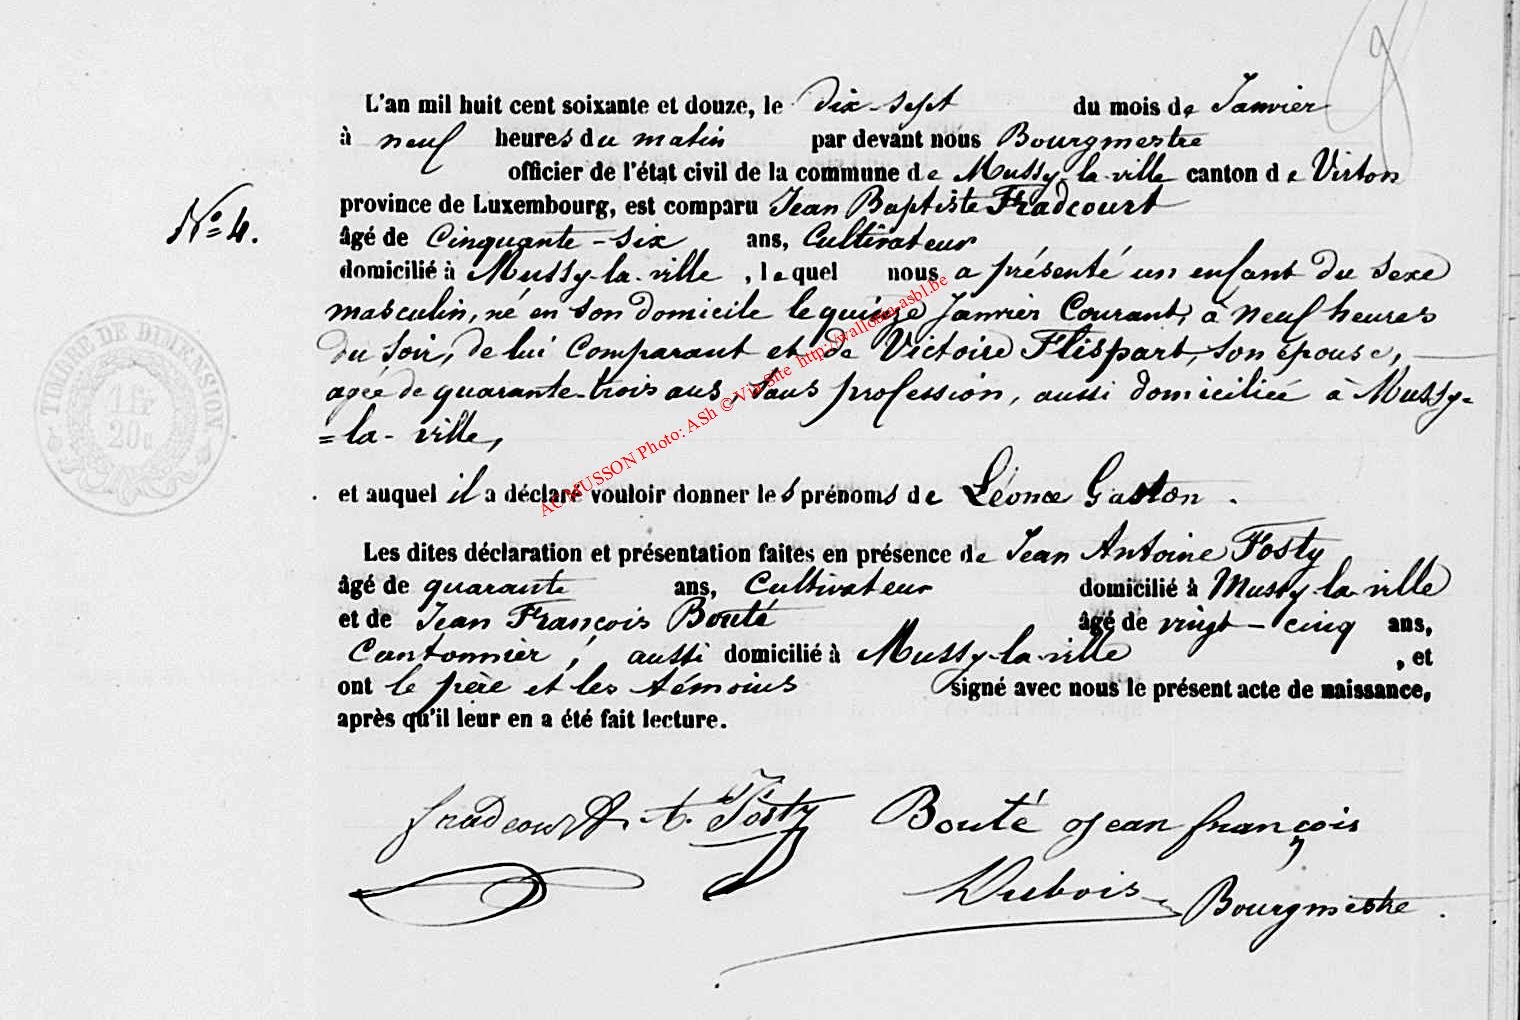 L'an mil huit cent soixante et douze, le dix-sept du mois de Janvier
à neuf heures du matin par devant nous Bourgmestre
officier de l'état civil de la commune de Mussy-la-ville canton de Virton
N.º 4.
province de Luxembourg, est comparu Jean Baptiste Fradcourt
âgé de Cinquante-six ans, Cultivateur
domicilié à Mussy-la-ville, lequel nous a présenté un enfant du sexe
masculin, né en son domicile le quinze Janvier Courant, à neuf heures
du soir, de lui Comparant et de Victoire Flispart, son épouse,
agée de quarante-trois ans, sans profession, aussi domiciliée à Mussy-
=la-ville,
et auquel il a déclaré vouloir donner les prénoms de Léonce Gaston.
Les dites déclaration et présentation faites en présence de Jean Antoine Fosty
âgé de quarante ans, Cultivateur domicilié à Mussy-la-ville
et de Jean François Bouté âgé de vingt-cinq ans,
Cantonnier, aussi domicilié à Mussy-la-ville, et
ont le père et les témoins signé avec nous le présent acte de naissance,
après qu'il leur en a été fait lecture.
fradcourt t. J Fosty Bouté jean françois
Dubois Bourgmestre.
TIMBRE DE DIMENSION
1 fr
20c
ACMUSSON Photo: ASh © Via Site http://wallonia-asbl.be